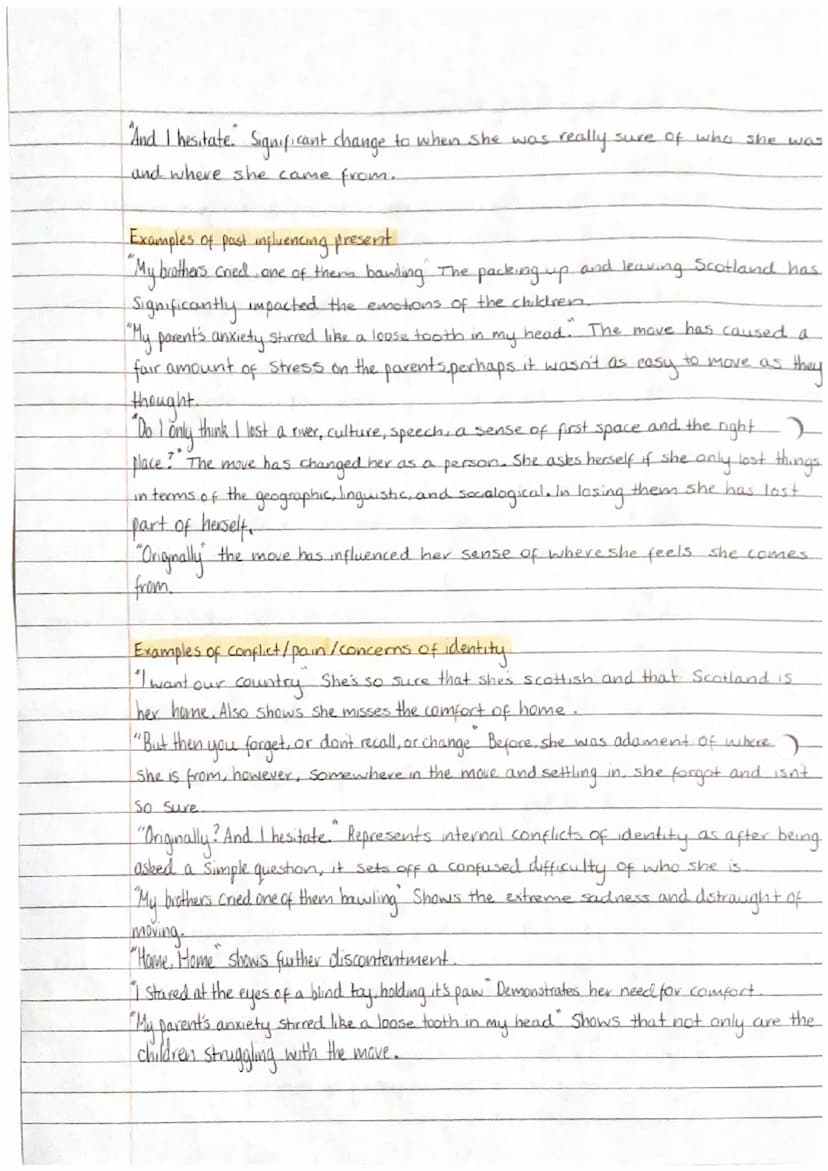 "And I hesitate." Significant change to when she was really sure of who she was
and where she came from.
Examples of past influencing present
"My brothers cried, one of them bawling" The packing up and leaving Scotland has
significantly impacted the emotions of the children.
"My parent's anxiety stirred like a loose tooth in my head." The move has caused a
fair amount of stress on the parents, perhaps it wasn't as easy to move as they
thought.
"Do I only think I lost a river, culture, speech, a sense of first space and the right
place?" The move has changed her as a person. She asks herself if she only lost things
in terms of the geographic, linguistic, and socialogical. In losing them she has lost
part of herself.
"Originally" the move has influenced her sense of where she feels she comes
from.
Examples of conflict/pain/concerns of identity
"I want our country" She's so sure that she's scottish and that Scotland is
her home. Also shows she misses the comfort of home.
"But then you forget, or don't recall, or change" Before, she was adament of where
she is from, however, somewhere in the move and settling in, she forgot and isn't
so sure.
"Originally? And I hesitate." Represents internal conflicts of identity as after being
asked a simple question, it sets off a confused difficulty of who she is.
"My brothers cried one of them bawling" Shows the extreme sadness and distraught of
moving.
"Home, Home" shows further discontentment.
"I stared at the eyes of a blind toy, holding it's paw" Demonstrates her need for comfort.
"My parent's anxiety stirred like a loose tooth in my head" Shows that not only are the
children struggling with the move.